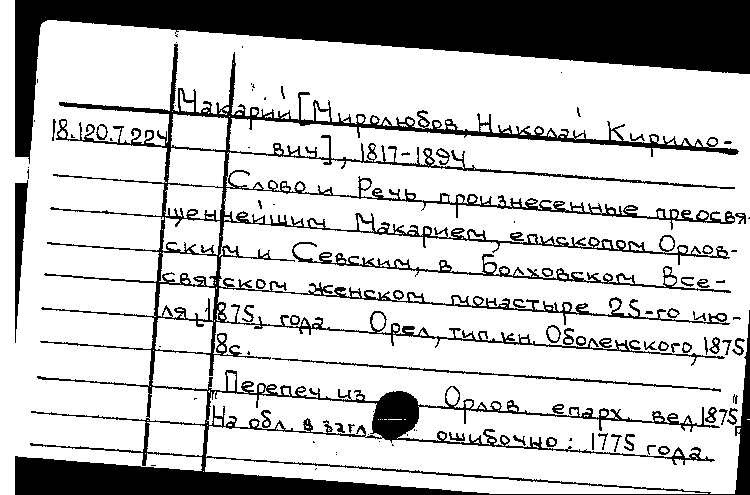 Макарий [Миролюбов, Николай Кирилло-
18.120.7.224
вич], 1817-1894.
Слово и Речь, произнесенные преосвя-
щеннейшим Макарием, епископом Орлов-
ским и Севским, в Болховском Все-
святском женском монастыре 25-го ию-
ля, [1875] года. Орел, тип. кн. Оболенского, 1875.
8с.
Перепеч. из "Орлов. епарх. вед." 1875
На обл. в загл. ошибочно: 1775 года.